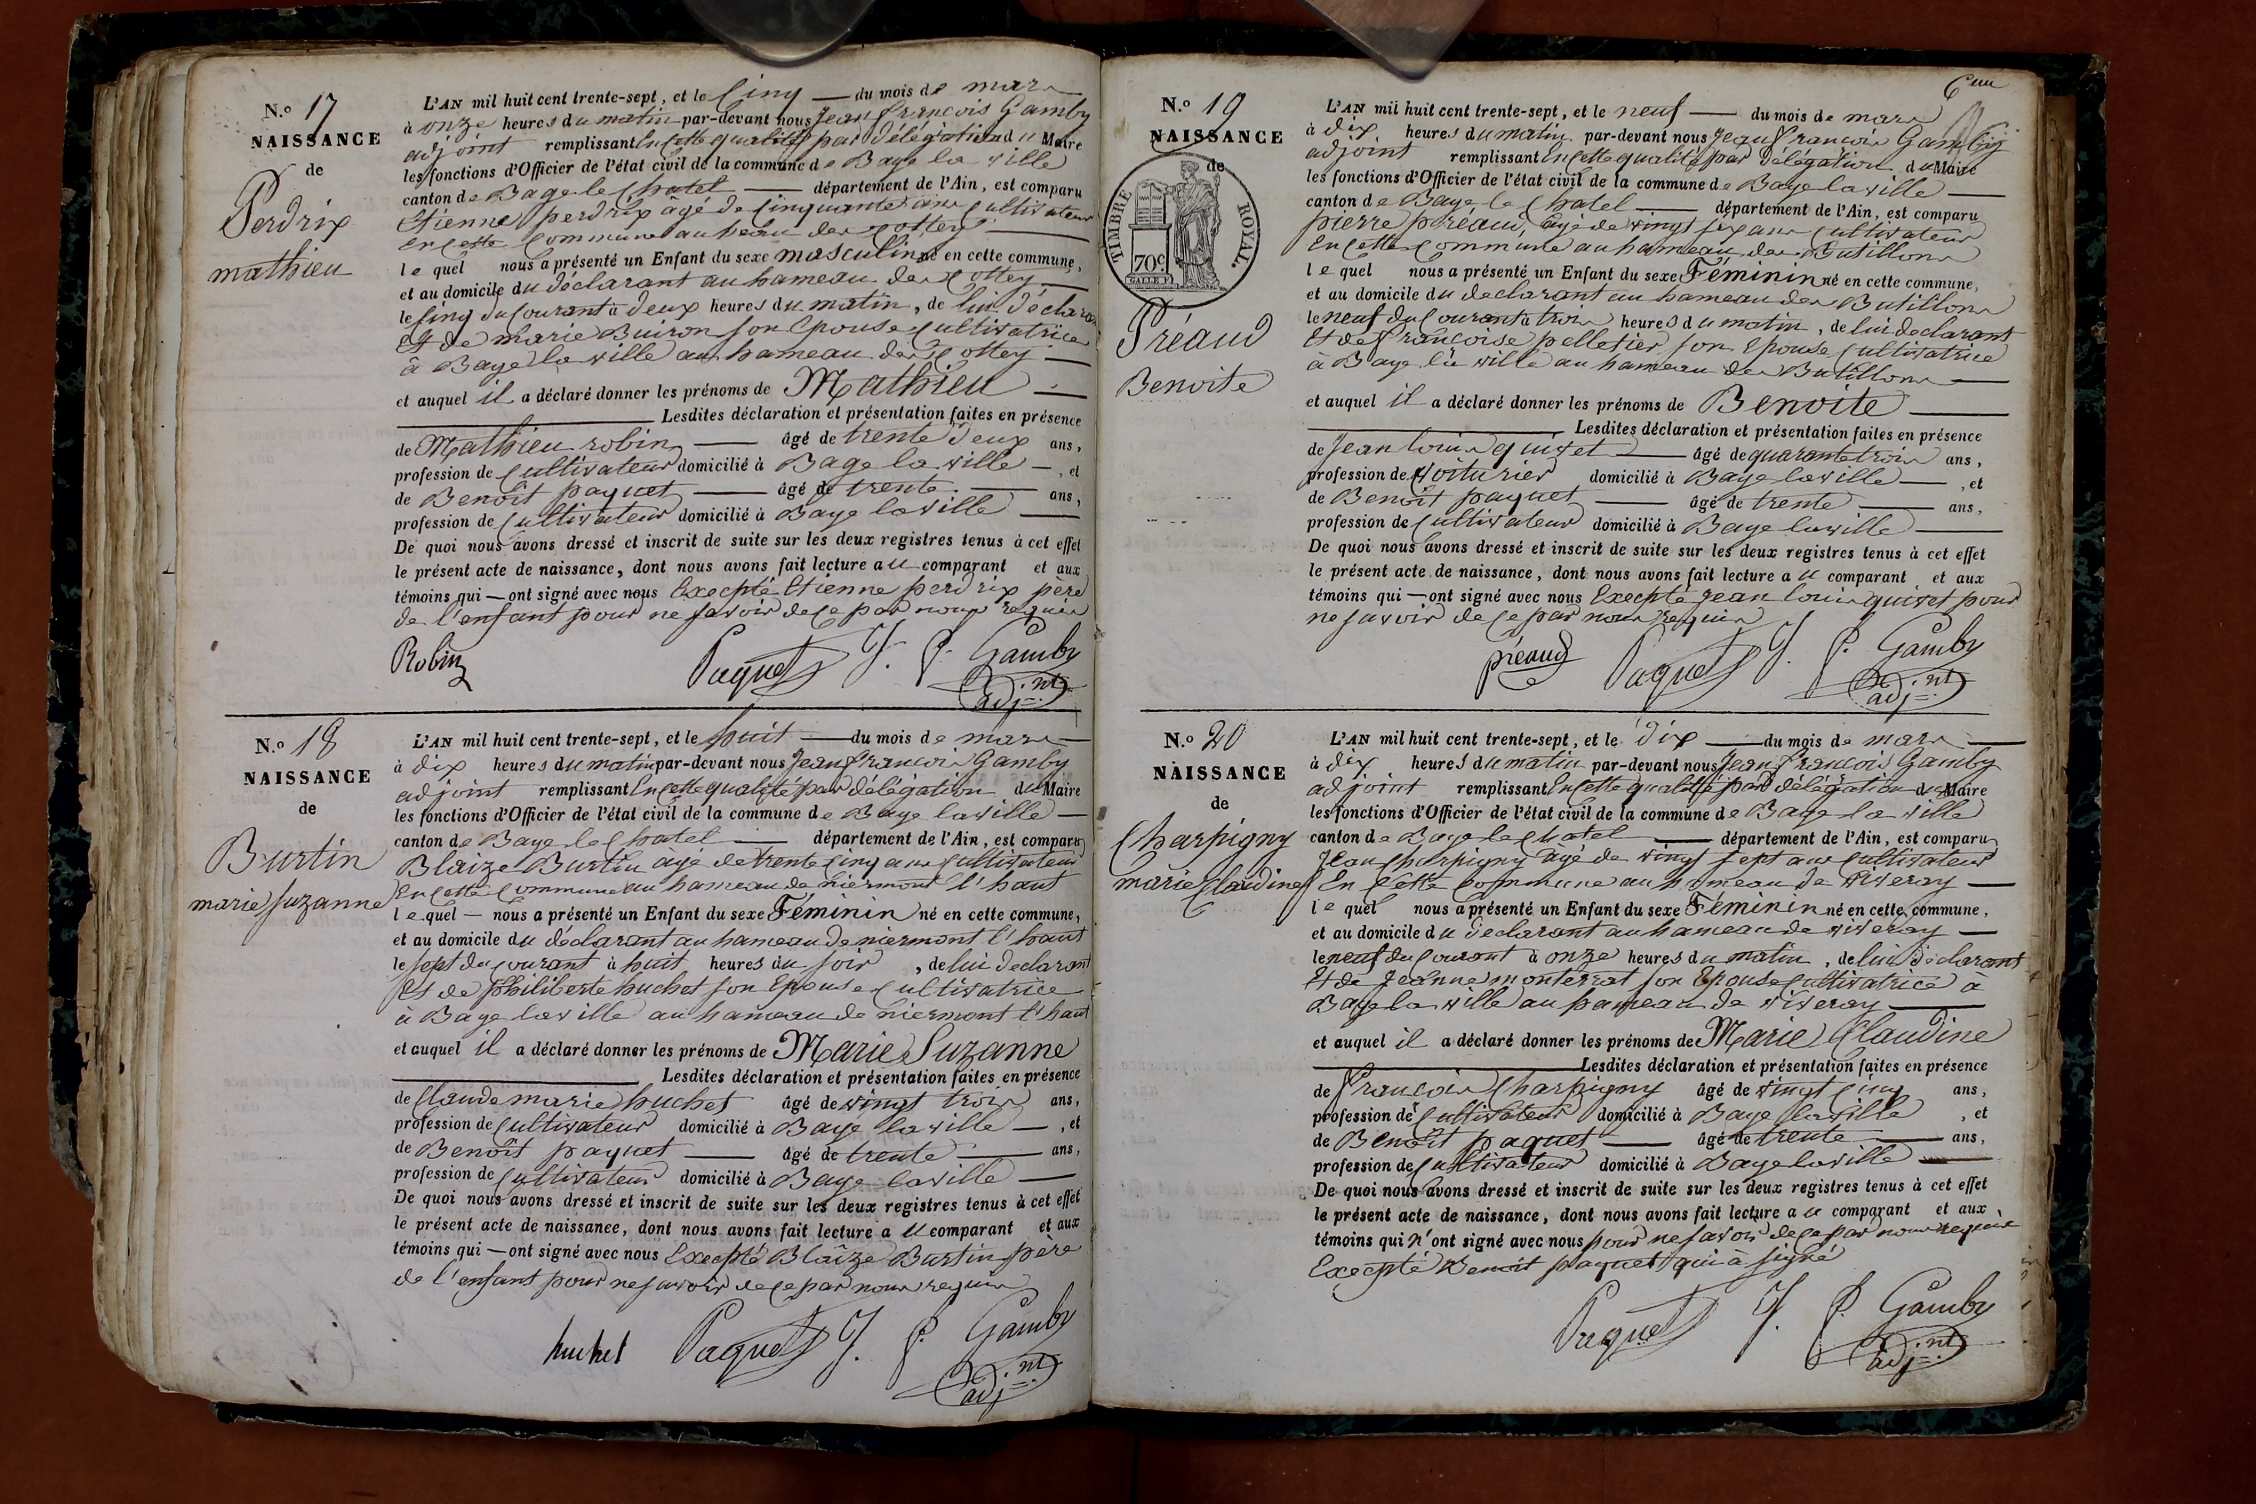 N.º 17
NAISSANCE
de
Perdrix
mathieu
L'AN mil huit cent trente-sept, et le Cinq du mois de mars
à onze heures du matin par-devant nous Jean françois Gamby
adjoint remplissant En cette qualité par délégation du Maire
les fonctions d'Officier de l'état civil de la commune de Bage la ville
canton de Bage le Chatel département de l'Ain, est comparu
Etienne perdrix âgé de Cinquante ans Cultivateur
En cette Commune au hameau des Cottey
le quel nous a présenté un Enfant du sexe masculin né en cette commune,
et au domicile du déclarant au hameau des Cottey
le Cinq du Courant à deux heures du matin, de lui déclarant
Et de marie Buiron son Epouse Cultivatrice
à Bage la ville au hameau des Cottey
et auquel il a déclaré donner les prénoms de Mathieu
Lesdites déclaration et présentation faites en présence
de Mathieu robin âgé de trente deux ans,
profession de Cultivateur domicilié à Bage la ville, et
de Benoît paquet âgé de trente ans,
profession de Cultivateur domicilié à Bage la ville
De quoi nous avons dressé et inscrit de suite sur les deux registres tenus à cet effet
le présent acte de naissance, dont nous avons fait lecture au comparant et aux
témoins qui — ont signé avec nous Excepté Etienne perdrix père
de l'enfant pour ne savoir de ce par nous requis
Robin Paquet J. f. Gamby
adj.nt
N.º 18
NAISSANCE
de
Burtin
marie suzanne
L'AN mil huit cent trente-sept, et le huit du mois de mars
à dix heures du matin par-devant nous Jean françois Gamby
adjoint remplissant En cette qualité par délégation du Maire
les fonctions d'Officier de l'état civil de la commune de Bage la ville
canton de Bage le Chatel département de l'Ain, est comparu
Blaize Burtin agé de trente Cinq ans Cultivateur
En cette Commune au hameau de niermont l'haut
le quel — nous a présenté un Enfant du sexe Féminin né en cette commune,
et au domicile du déclarant au hameau de niermont l'haut
le sept du courant à huit heures du soir, de lui déclarant
Et de philiberte huchet son Epouse Cultivatrice
à Bage la ville au hameau de niermont l'haut
et auquel il a déclaré donner les prénoms de Marie Suzanne
Lesdites déclaration et présentation faites en présence
de Claude marie huchet âgé de vingt trois ans,
profession de Cultivateur domicilié à Bage la ville, et
de Benoît paquet âgé de trente ans,
profession de Cultivateur domicilié à Bage la ville
De quoi nous avons dressé et inscrit de suite sur les deux registres tenus à cet effet
le présent acte de naissance, dont nous avons fait lecture au comparant et aux
témoins qui — ont signé avec nous Excepté Blaîze Burtin père
de l'enfant pour ne savoir de ce par nous requis
huchet Paquet J. f. Gamby
adj.nt
N.º 19
NAISSANCE
de
TIMBRE ROYAL.
70c
Préaud
Benoite
L'AN mil huit cent trente-sept, et le neuf du mois de mars
à dix heures du matin par-devant nous Jean françois Gamby
adjoint remplissant En cette qualité par délégation du Maire
les fonctions d'Officier de l'état civil de la commune de Bage la ville
canton de Bage le Chatel département de l'Ain, est comparu
pierre préaud, âgé de vingt six ans Cultivateur
En cette Commune au hameau des Butillons
le quel nous a présenté un Enfant du sexe Féminin né en cette commune,
et au domicile du declarant au hameau des Butillons
le neuf du Courant à trois heures du matin, de lui declarant
Et de françoise pelletier son Epouse Cultivatrice
à Bage la ville au hameau des Butillons
et auquel il a déclaré donner les prénoms de Benoite
Lesdites déclaration et présentation faites en présence
de Jean louis quivet âgé de quarante trois ans,
profession de Voiturier domicilié à Bage la ville, et
de Benoît paquet âgé de trente ans,
profession de Cultivateur domicilié à Bage la ville
De quoi nous avons dressé et inscrit de suite sur les deux registres tenus à cet effet
le présent acte de naissance, dont nous avons fait lecture au comparant et aux
témoins qui — ont signé avec nous Excepté Jean louis quivet pour
ne savoir de ce par nous requis
préaud Paquet J. f. Gamby
adj.nt
N.º 20
NAISSANCE
de
Charpigny
marie Claudine
L'AN mil huit cent trente-sept, et le dix du mois de mars
à dix heures du matin par-devant nous Jean françois Gamby
adjoint remplissant En cette qualité par délégation du Maire
les fonctions d'Officier de l'état civil de la commune de Bage la ville
canton de Bage le Chatel département de l'Ain, est comparu
Jean Charpigny âgé de vingt sept ans Cultivateur
En Cette Commune au hameau de viveray
le quel nous a présenté un Enfant du sexe Féminin né en cette commune,
et au domicile du declarant au hameau de viveray
le neuf du Courant à onze heures du matin, de lui déclarant
Et de Jeanne monterrat son Epouse Cultivatrice à
Bage la ville au hameau de viveray
et auquel il a déclaré donner les prénoms de Marie Claudine
Lesdites déclaration et présentation faites en présence
de François Charpigny âgé de vingt Cinq ans,
profession de Cultivateur domicilié à Bage la ville, et
de Benoît paquet âgé de trente ans,
profession de Cultivateur domicilié à Bage la ville
De quoi nous avons dressé et inscrit de suite sur les deux registres tenus à cet effet
le présent acte de naissance, dont nous avons fait lecture au comparant et aux
témoins qui n'ont signé avec nous pour ne savoir de ce par nous requis
Excepté Benoit paquet qui à signé
Paquet J. f. Gamby
adj.nt